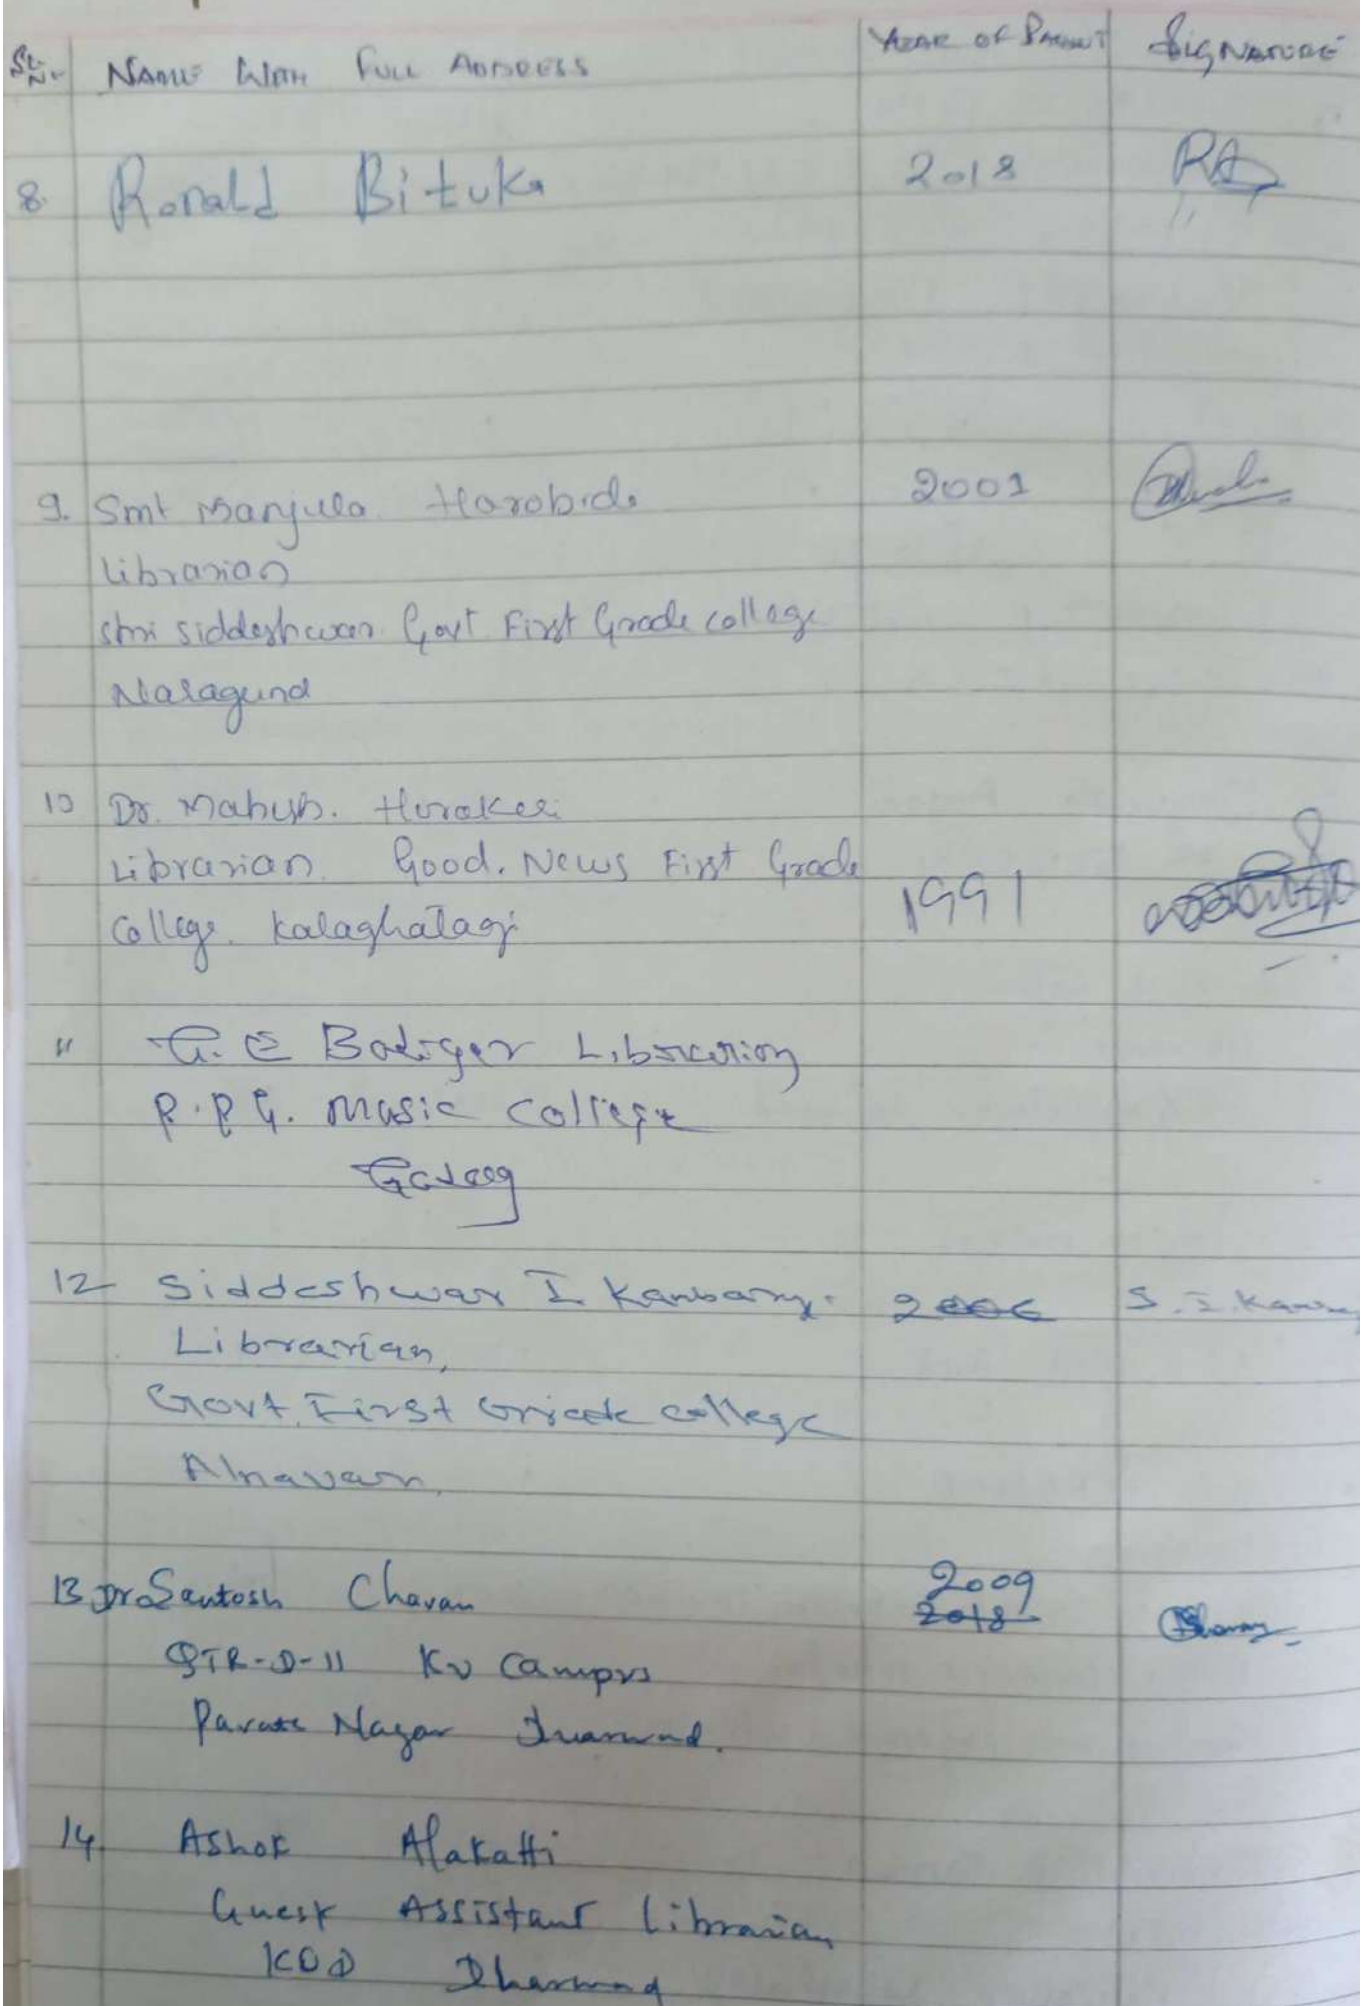 Sl. No NAME WITH FULL ADDRESS YEAR OF SIGNATURE
8. Ronald Bituka 2018
9. Smt Manjula Harobidi 2001
Librarian
Shri Siddeshwar Govt First Grade college
Naragund
10 Dr. Mahesh. Horakeri
Librarian. Good. News First Grade
College. Kalaghatagi 1991
11 G. E Badiger Librarian
P. P. G. Music College
Gadag
12 Siddeshwar I 2006 S. I.
Librarian,
Govt. First Grade college
Alnavar,
13 Dr Santosh Chavan 2009
2018
QTR-D-11 KU Campus
Pavate Nagar Dharwad.
14. Ashok Alakatti
Guest Assistant Librarian
KUD Dharwad